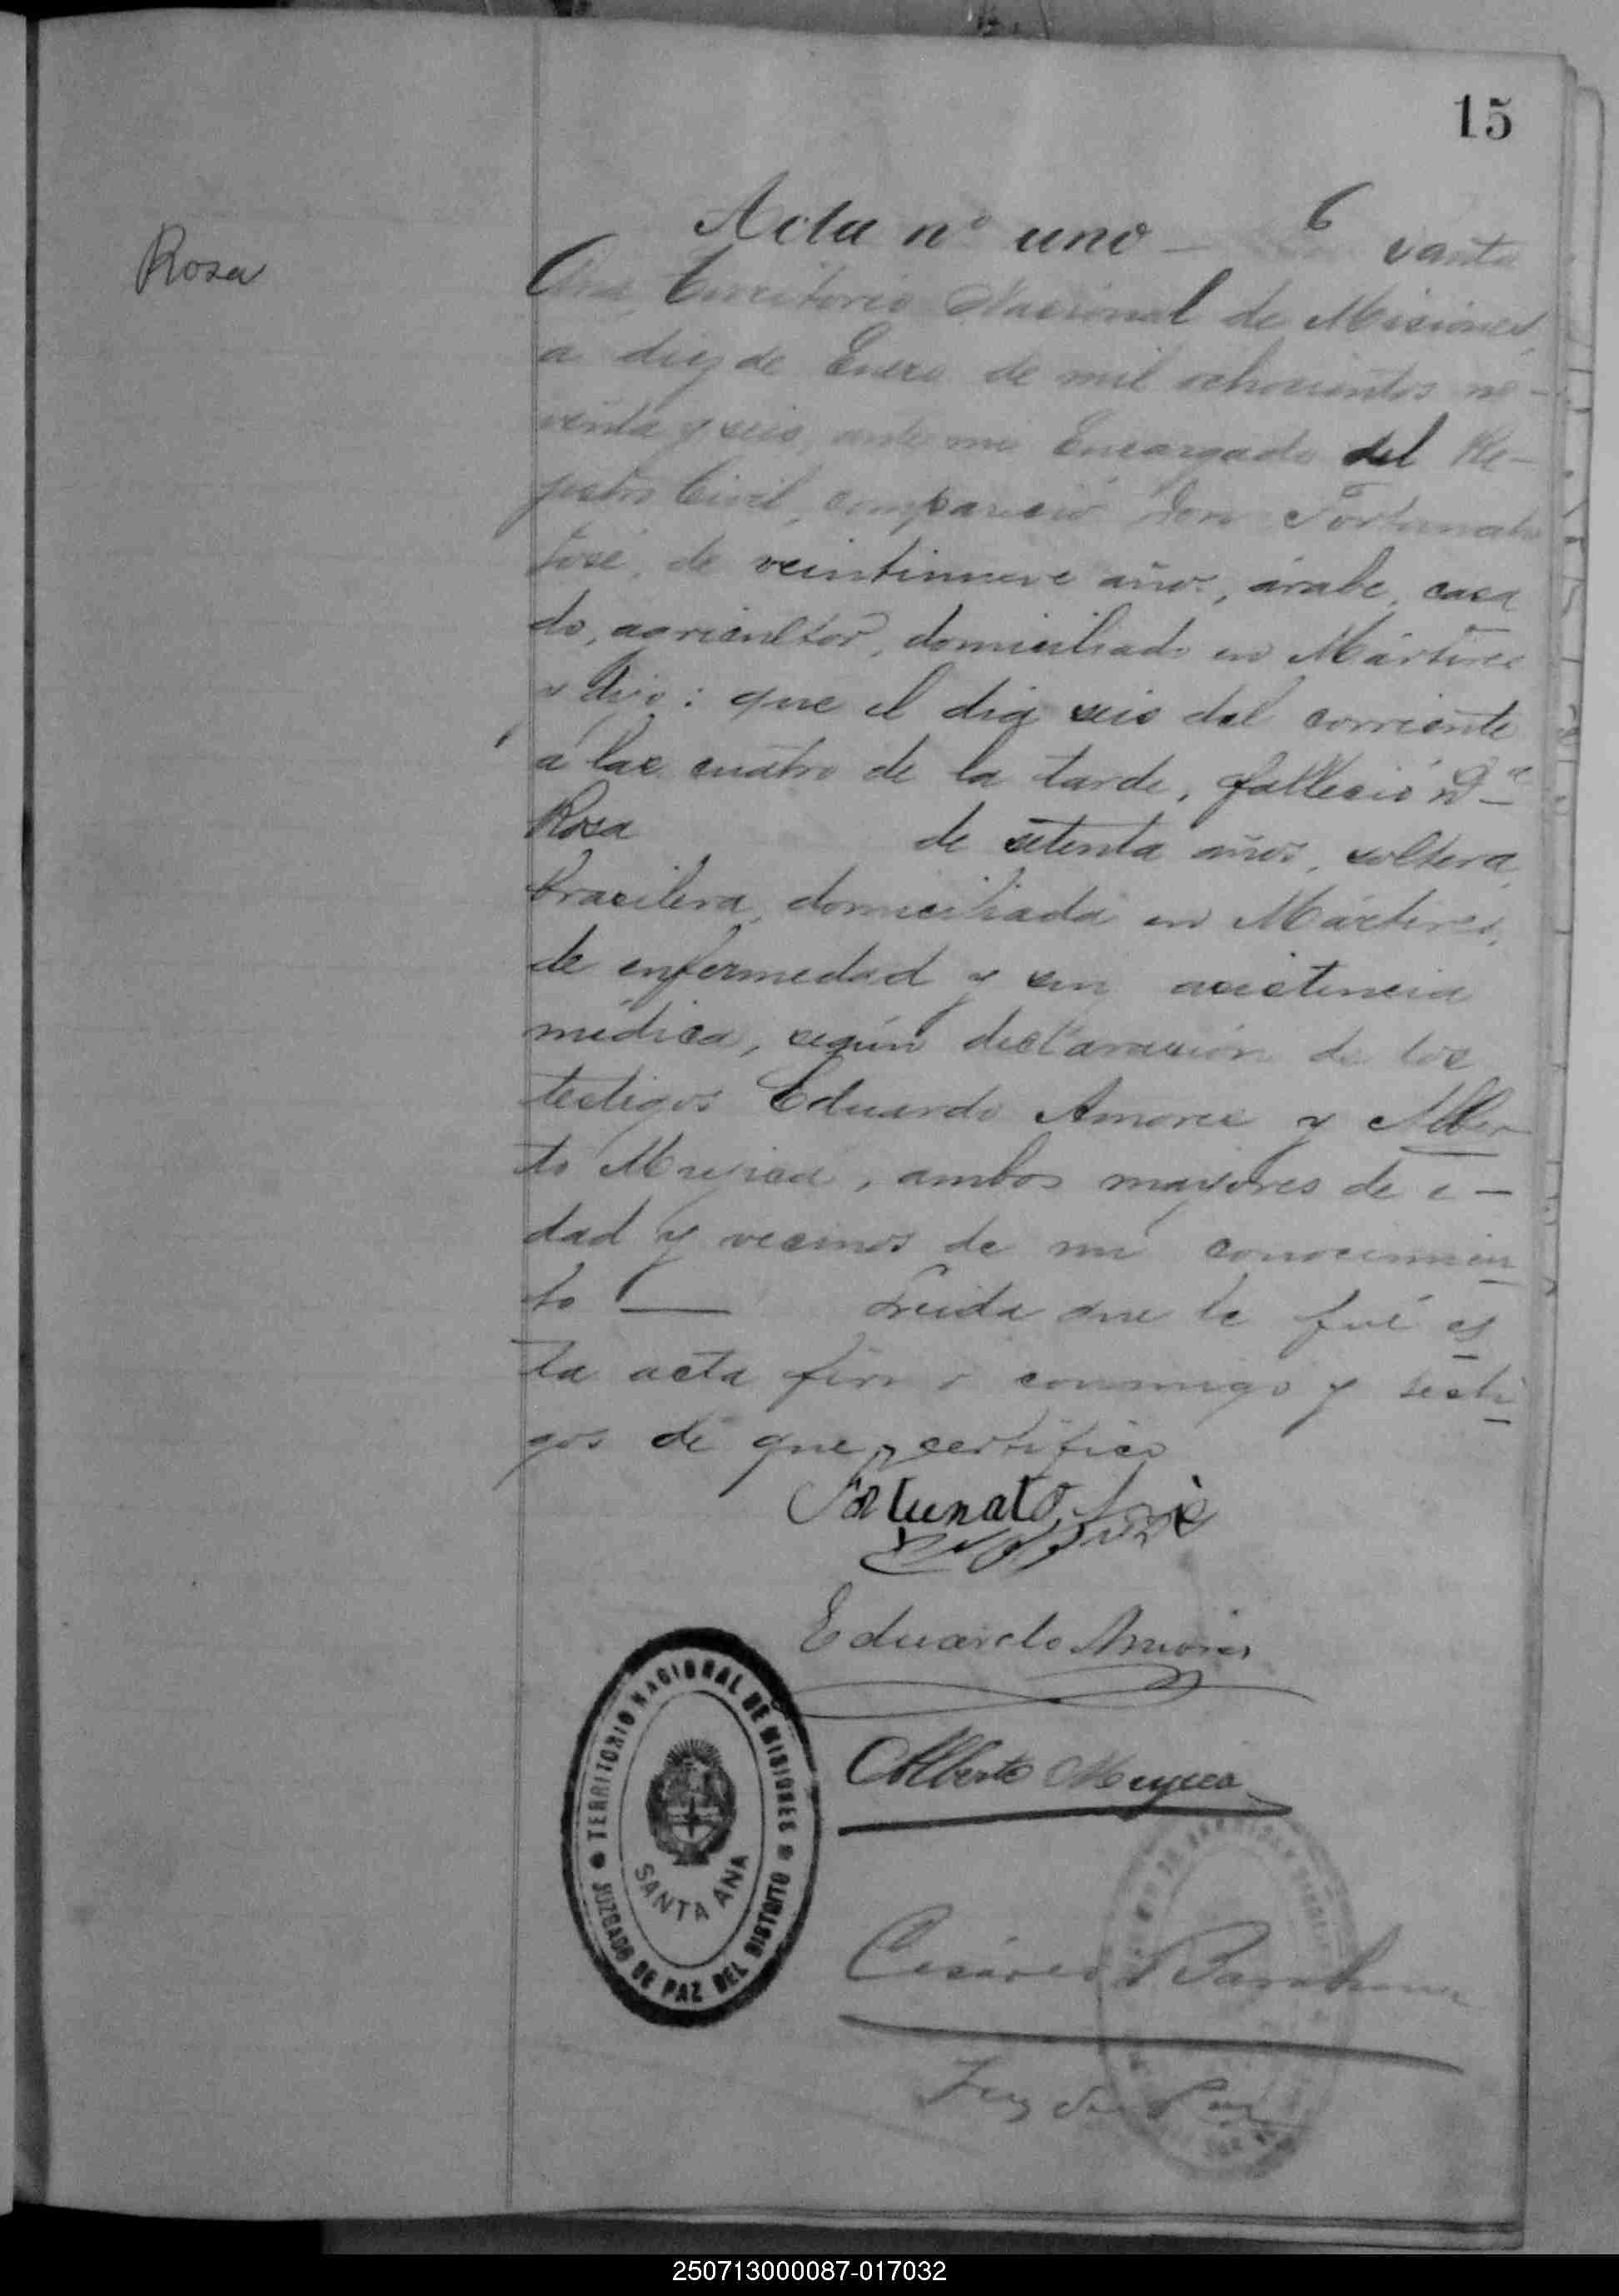 15
Rosa
Acta nº uno — En Santa
Ana, Territorio Nacional de Misiones,
a diez de Enero de mil ochocientos no-
venta y seis, ante mi Encargado del Re-
jistro Civil, compareció Don Fortunato
José, de veintinueve años, árabe, casa
do, agricultor, domiciliado en Mártires
y dijo: que el dia seis del corriente
á las cuatro de la tarde, falleció Dª
Rosa de setenta años, soltera,
brasilera, domiciliada en Mártires,
de enfermedad y sin asistencia
médica, según declaración de los
testigos Eduardo Amores y Alber
to Mujica, ambos mayores de e-
dad y vecinos de mi conocimien
to — Leida que le fué es
ta acta firmó conmigo y testi
gos de que certifico
Fortunato José
Eduardo Amores
Alberto Mujica
TERRITORIO NACIONAL DE MISIONES
SANTA ANA
JUZGADO DE PAZ DEL DISTRITO
Cesáreo
Juez de Paz
250713000087-017032